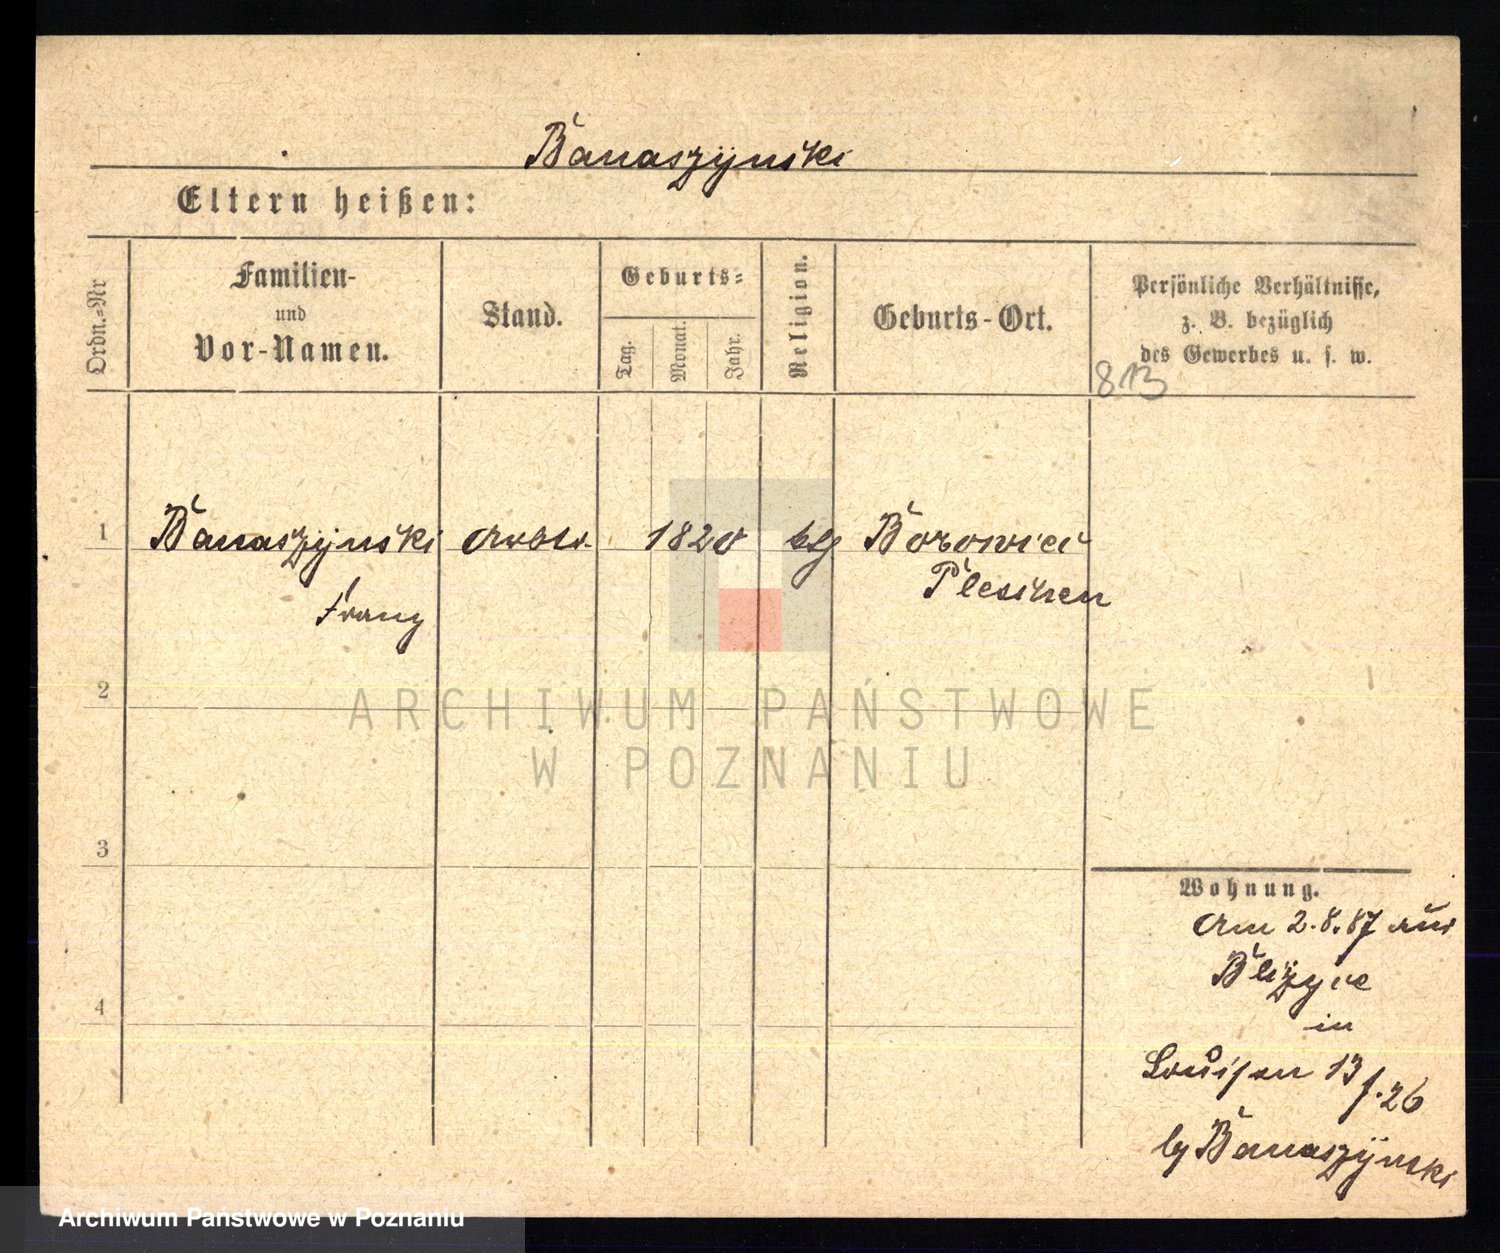 Banaszynski
Eltern heißen:
Ordn.-Nr
Familien-
und
Vor-Namen.
Stand.
Geburts-
Tag.
Monat.
Jahr.
Religion.
Geburts-Ort.
Persönliche Verhältnisse,
z. B. bezüglich
des Gewerbes u. s. w.
813
1 Banaszynski 1820 Borowiec
Franz Pleschen
2
ARCHIWUM PAŃSTWOWE
W POZNANIU
3
Wohnung.
Am 2.8.87 aus
in
Louisen 13 f. 26
4
by Banaszynski
Archiwum Państwowe w Poznaniu